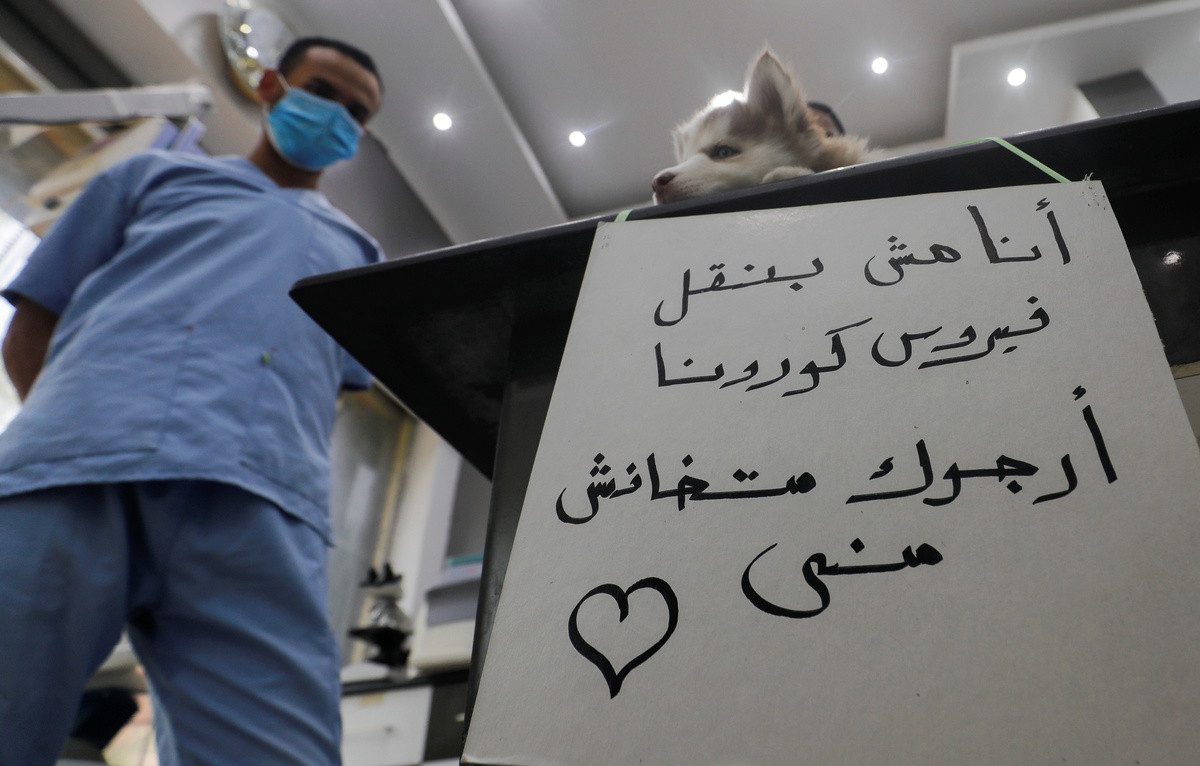 أنا مش بننقل
فيروس كورونا
أرجوك متخافش
مني